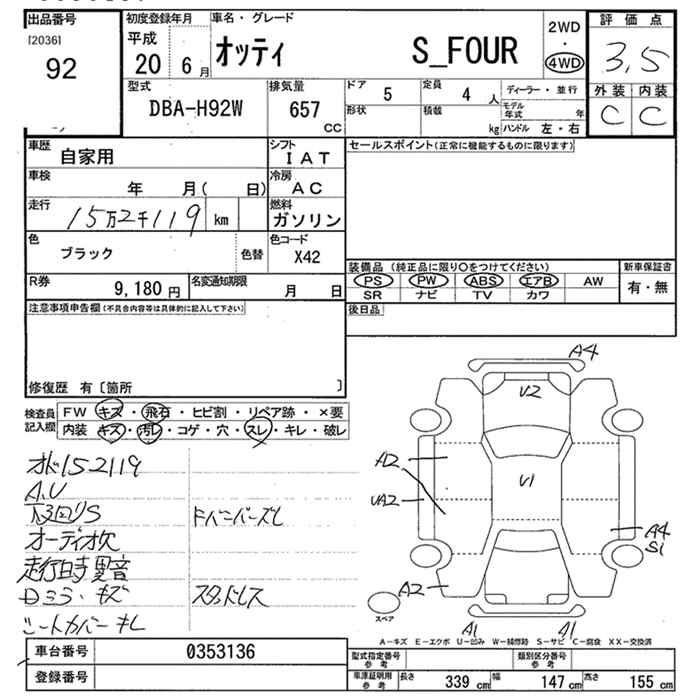 出品番号
[2036]
92
初度登録年月
平成
20 6月
車名・グレード
オッティ S_FOUR
2WD
・
4WD
評価点
3.5
外装 内装
C C
型式
DBA-H92W
排気量
657
CC
ドア
5
定員
4
人
形状
積載
kg
ディーラー・並行
モデル年式
年
ハンドル 左・右
車歴
自家用
シフト
IAT
セールスポイント(正常に機能するものに限ります)
車検
年 月( 日)
冷房
AC
走行
15万2千119
km
燃料
ガソリン
色
ブラック
色替
色コード
X42
装備品 (純正品に限り○をつけてください)
新車保証書
PS PW ABS エアB AW
有・無
SR ナビ TV カワ
R券
9,180 円
名変通知期限
月 日
後日品
注意事項申告欄(不具合内容等は具体的に記入して下さい)
修復歴 有〔箇所 〕
検査員記入欄
FW キズ・飛石・ヒビ割・リペア跡・×要
内装 キズ・汚レ・コゲ・穴・スレ・キレ・破レ
オド152119
A.U
下回りS
ドバーバーズレ
オーディオ欠
走行時異音
Dミラーキズ
スタッドレス
シートカバーキレ
A4
U2
A2
U1
UA2
A4
S1
A2
スペア
A1
A1
A-キズ E-エクボ U-凹み W-補修跡 S-サビ C-腐食 XX-交換済
車台番号
0353136
登録番号
型式指定番号
参考
類別区分番号
参考
車庫証明用
参考
長さ
339 cm
幅
147 cm
高さ
155 cm